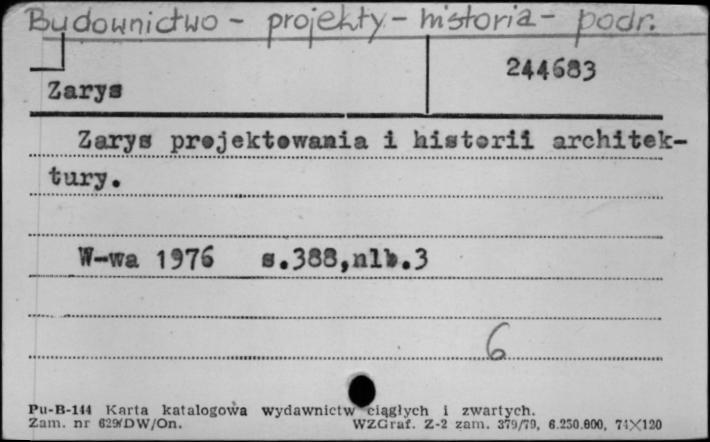 Budownictwo - projekty - historia - podr.
244683
Zarys
Zarys projektowania i historii architek-
tury.
W-wa 1976 s.388,nlb.3
6
Pu-B-144 Karta katalogowa wydawnictw ciągłych i zwartych.
Zam. nr 629/DW/On. WZGraf. Z-2 zam. 379/79, 6.250.000, 74X120